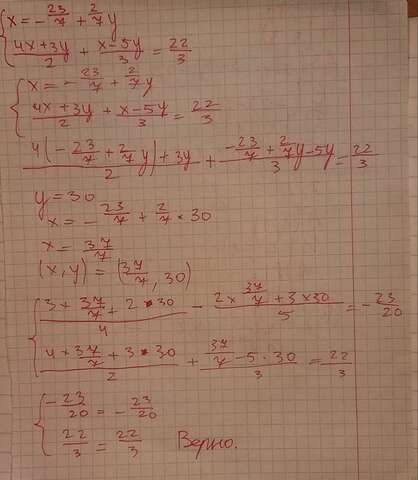 { x = - 23/7 + 2/7 y
{ (4x+3y)/2 + (x-5y)/3 = 22/3
{ x = - 23/7 + 2/7 y
{ (4x+3y)/2 + (x-5y)/3 = 22/3
(4(- 23/7 + 2/7 y) + 3y)/2 + (- 23/7 + 2/7 y - 5y)/3 = 22/3
y = 30
x = - 23/7 + 2/7 * 30
x = 37/7
(x, y) = (37/7, 30)
{ (3 * 37/7 + 2 * 30)/4 - (2 * 37/7 + 3 * 30)/5 = - 23/20
{ (4 * 37/7 + 3 * 30)/2 + (37/7 - 5 · 30)/3 = 22/3
{ - 23/20 = - 23/20
{ 22/3 = 22/3 Верно.